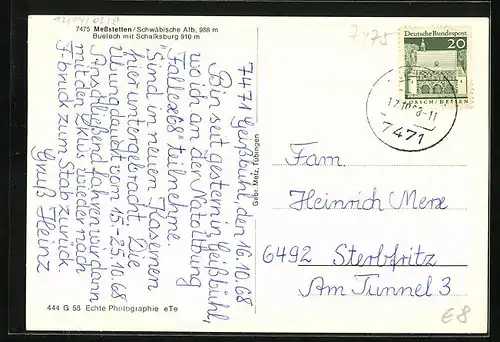 12/04/0218
7475 Meßstetten/Schwäbische Alb, 988 m
Bueloch mit Schalksburg 910 m
7475
7471 Geißbühl, den 16.10.68
Bin seit gestern in Geißbühl,
wo ich an der Natoübung
"Fallex68" teilnehme.
Sind in neuen Kasernen
hier untergebracht. Die
Übung dauert vom 15.-25.10.68
Anschließend fahren wir dann
mit den LKWs wieder nach
F'bruck zum Stab zurück.
Gruß Heinz
444 G 58 Echte Photographie eTe
Gebr. Metz, Tübingen
Deutsche Bundespost
20
LORSCH/HESSEN
7471
Fam.
Heinrich Merx
6492 Sterbfritz
Am Tunnel 3
€8